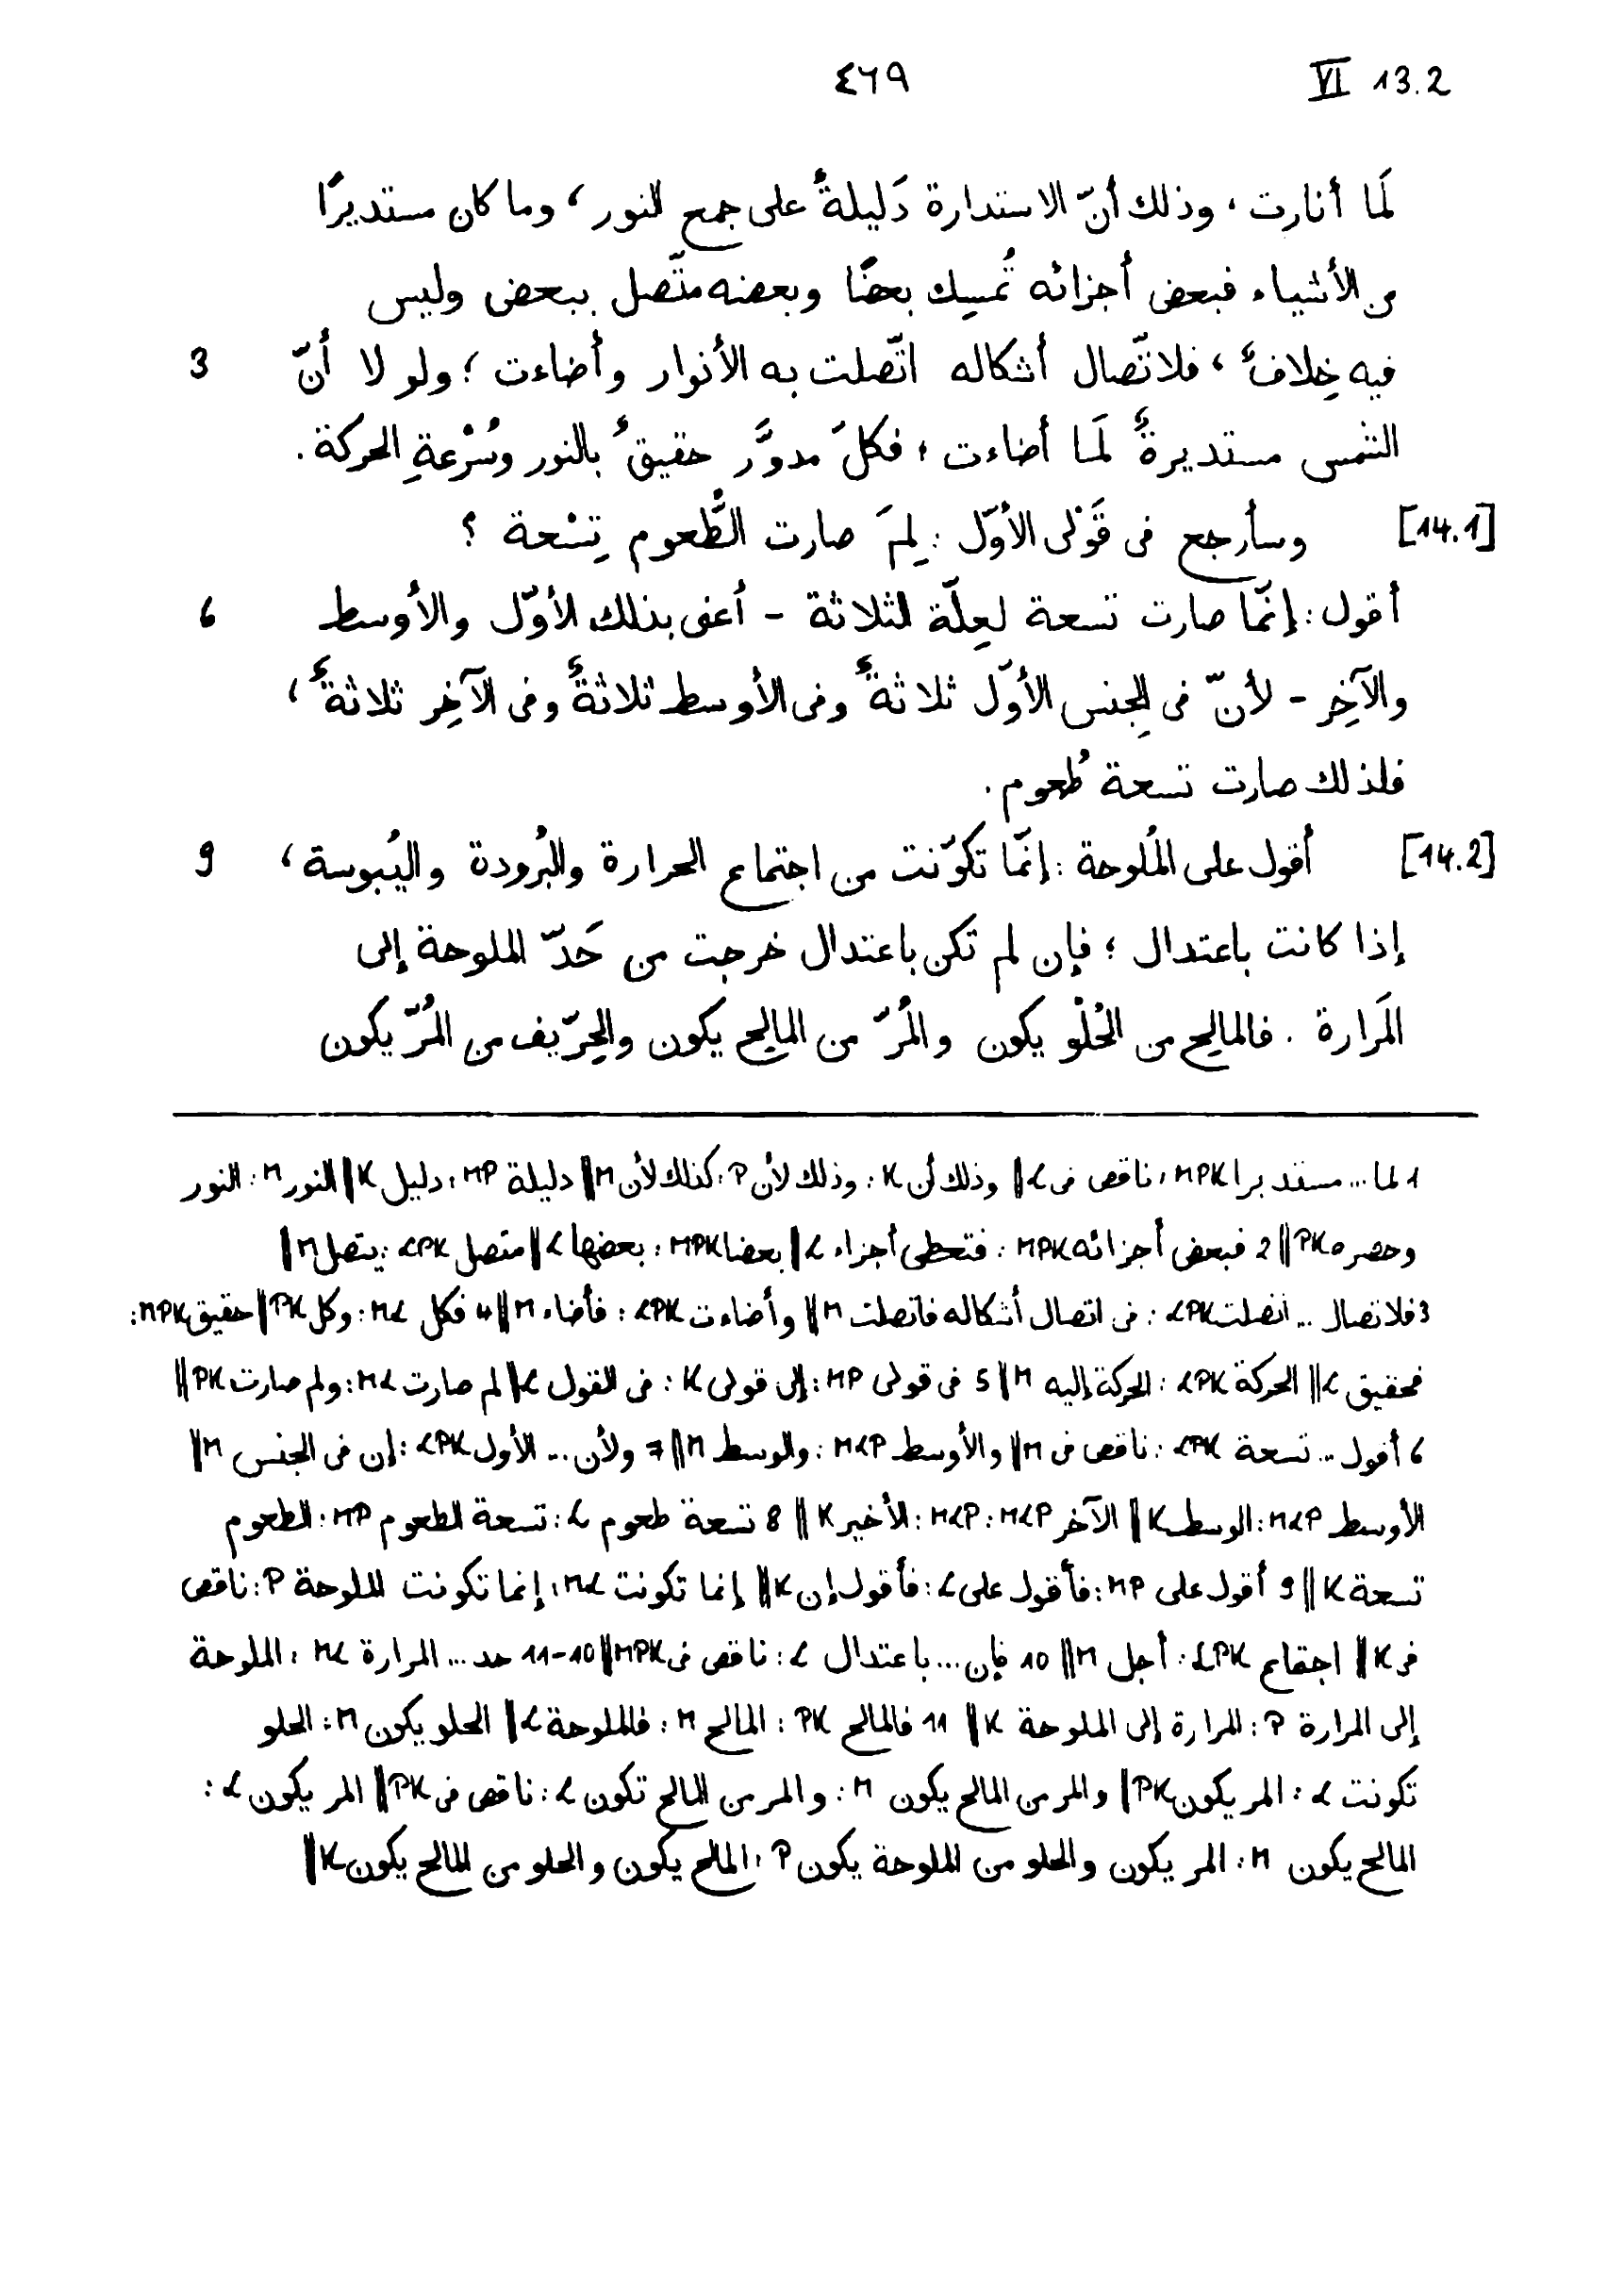 ٤٦٩ VI 13.2
لَما أنارت، وذلك أنّ الاستدارة دَليلةٌ على جمع النور، وما كان مستديرًا
من الأشياء فبعض أجزائه تُمسِك بعضًا وبعضه متّصل ببعض وليس
3 فيه خِلافٌ، فلاتّصال أشكاله اتّصلت به الأنوار وأضاءت؛ ولو لا أنّ
الشمس مستديرةٌ لَما أضاءت؛ فكلّ مدوَّر حقيقٌ بالنور وسُرْعةِ الحركة.
[14.1] وسأرجع فى قَوْلى الأوّل: لِمَ صارت الطُّعوم تِسْعة؟
6 أقول: إنّما صارت تسعة لعِلّة الثلاثة - أعنى بذلك الأوّل والأوسط
والآخِر - لأنّ فى الجِنس الأوّل ثلاثةٌ وفى الأوسط ثلاثةٌ وفى الآخِر ثلاثةٌ،
فلذلك صارت تسعة طُعوم.
[14.2] 9 أقول على المُلوحة: إنّما تكوّنت من اجتماع الحرارة والبُرودة واليُبوسة،
إذا كانت باعتدال؛ فإن لم تكن باعتدال خرجت من حَدّ الملوحة إلى
المَرارة. فالمالِح من الحُلْو يكون والمُرّ من المالِح يكون والحِرّيف من المُرّ يكون
1 لما... مستديرا MPK: ناقص فى L || وذلك أن K: وذلك لأن P: كذلك لأن M || دليلة MP: دليل K || النور M: النور
وحصره PK || 2 فبعض أجزائه MPK: فتحظى أجزاء L || بعضا MPK: بعضها L || متصل LPK: يتصل M ||
3 فلاتصال ... اتصلت LPK: فى اتصال أشكاله فاتصلت M || وأضاءت LPK: فأضاء M || 4 فكل ML: وكل PK || حقيق MPK:
فحقيق L || الحركة LPK: الحركة إليه M || 5 فى قولى MP: إلى قولى K: فى القول L || لم صارت ML: ولم صارت PK ||
6 أقول... تسعة LPK: ناقص فى M || والأوسط MLP: والوسط M || 7 ولأن... الأول LPK: إن فى الجنس M ||
الأوسط MLP: الوسط K || الآخر MLP: MLP: الأخير K || 8 تسعة طعوم L: تسعة الطعوم MP: الطعوم
تسعة K || 9 أقول على MP: فأقول على L: فأقول إن K || إنما تكونت ML: إنما تكونت الملوحة P: ناقص
فى K || اجتماع LPK: أجل M || 10 فإن... باعتدال L: ناقص فى MPK || 10-11 حد... المرارة ML: الملوحة
إلى المرارة P: المرارة إلى الملوحة K || 11 فالمالح PK: المالح M: فالملوحة L || الحلو يكون M: الحلو
تكونت L: المر يكون PK || والمر من المالح يكون M: والمر من المالح تكون L: ناقص فى PK || المر يكون L:
المالح يكون M: المر يكون والحلو من الملوحة يكون P: المالح يكون والحلو من المالح يكون K ||